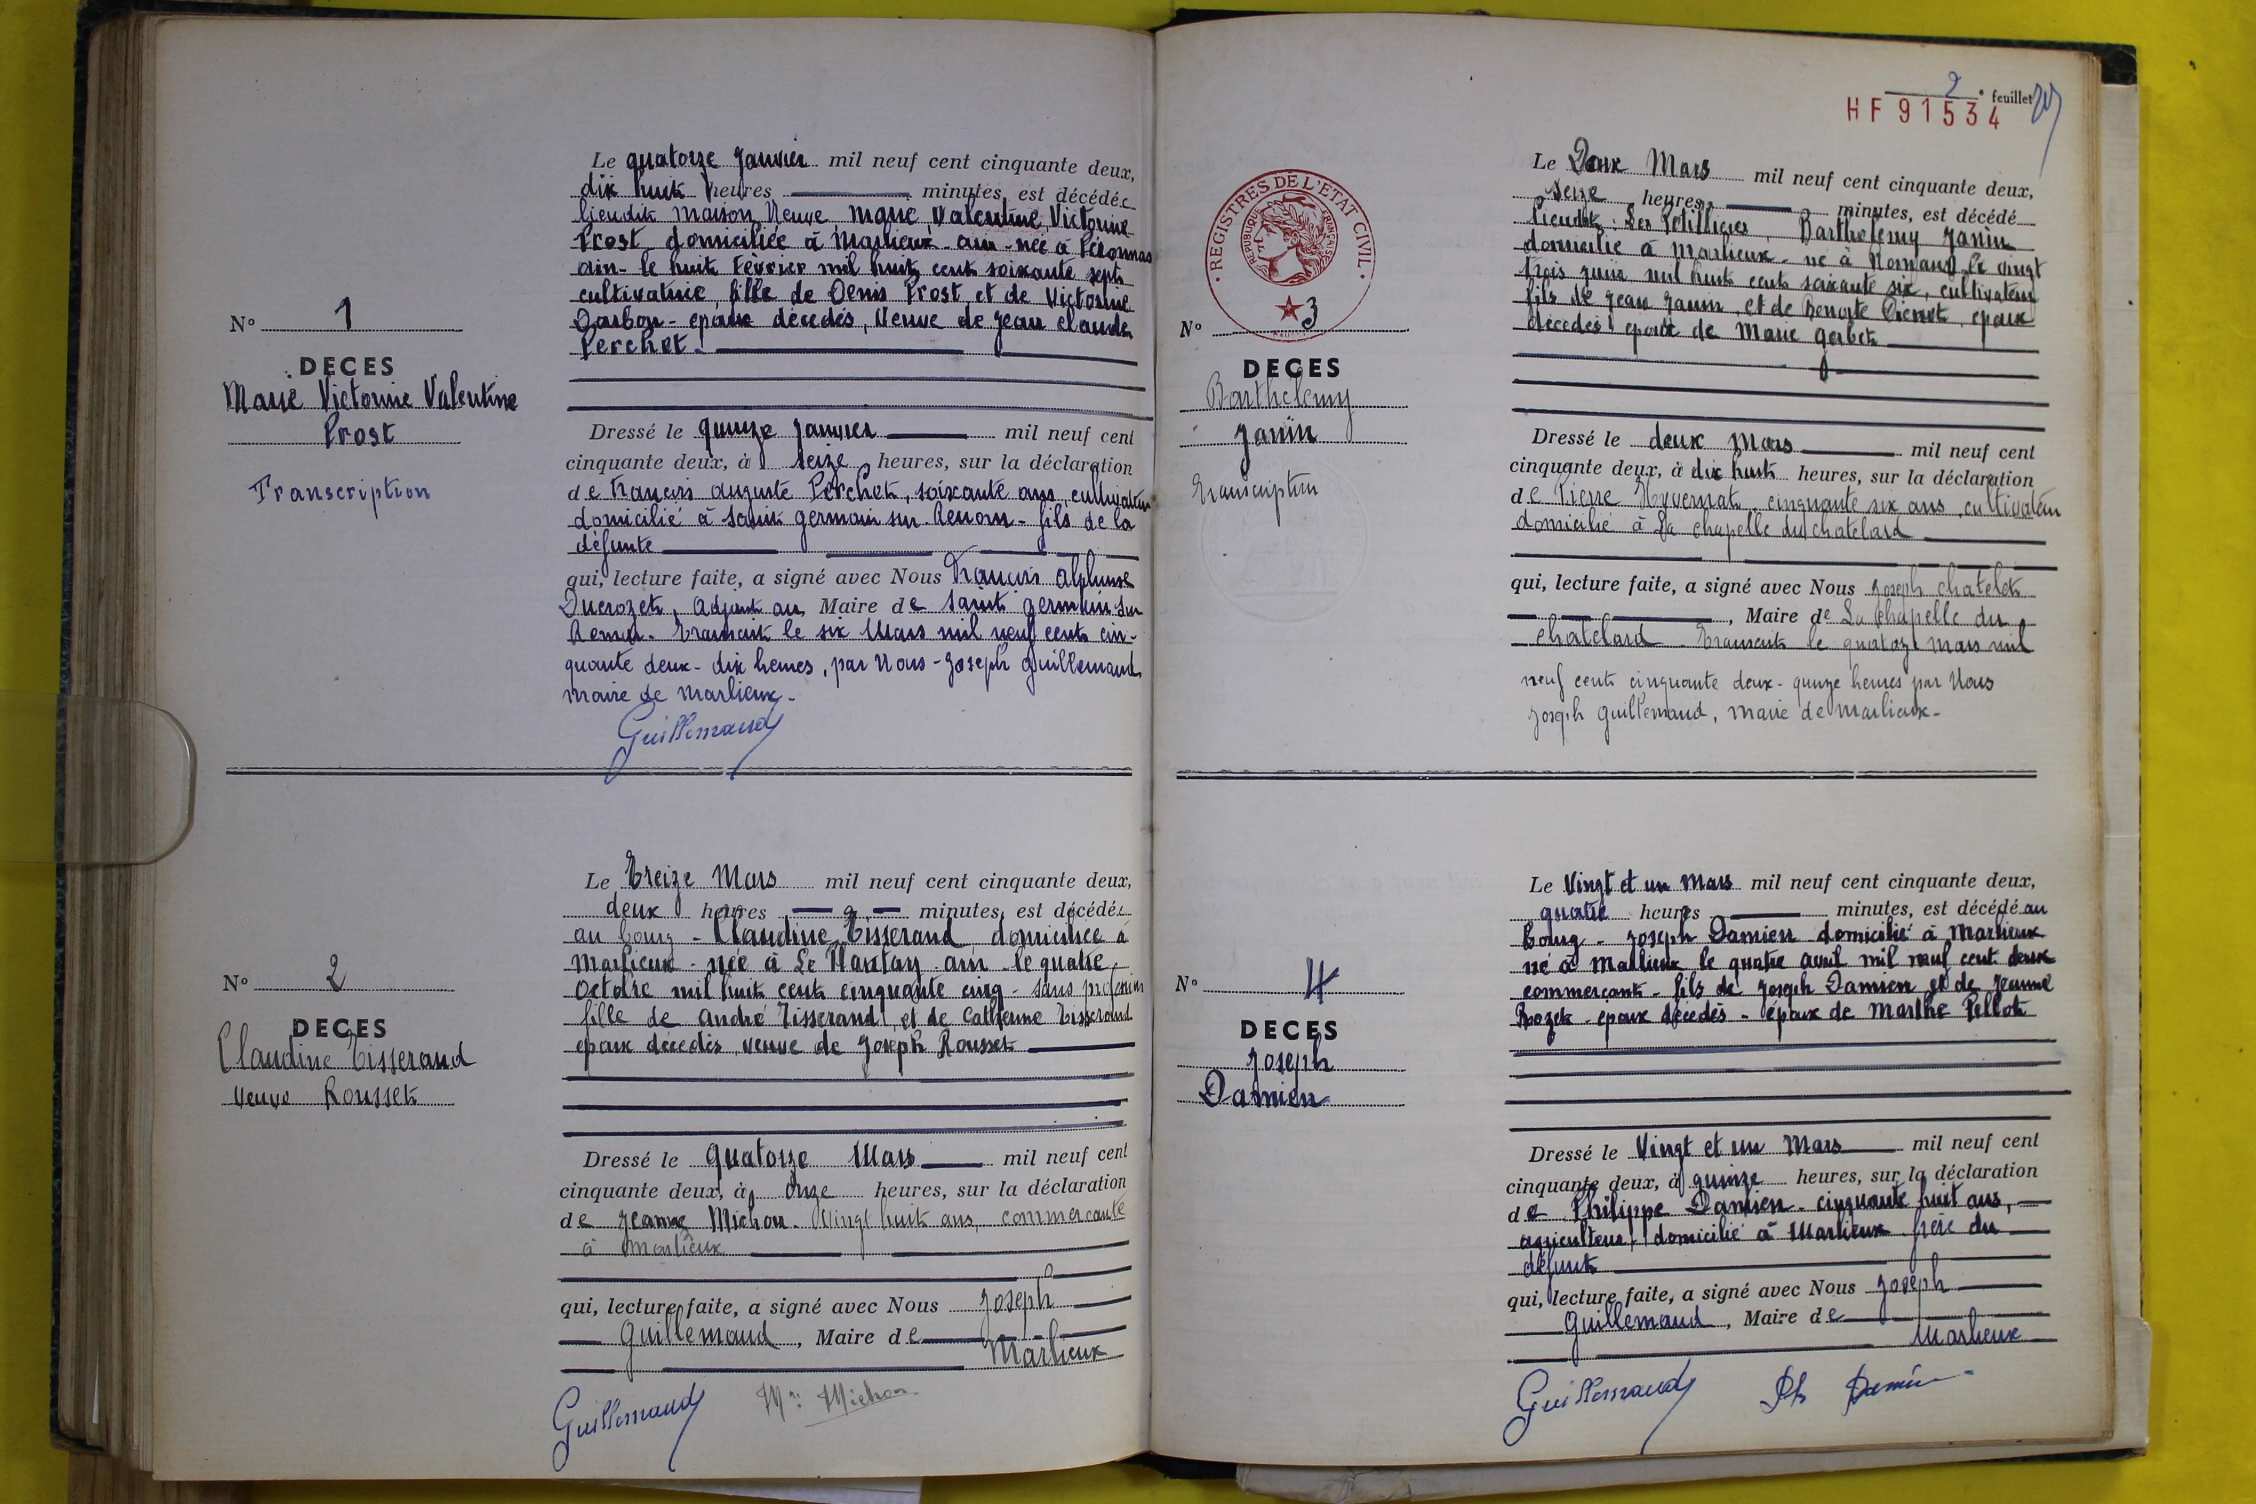 Le quatorze Janvier mil neuf cent cinquante deux,
dix huit heures minutes, est décédée
lieudit Maison Neuve Marie, Valentine, Victorine
Prost, domiciliée à Marlieux - ain - née à Péronnas
ain - le huit Février mil huit cent soixante sept
cultivatrice, fille de Denis Prost, et de Victorine
Darbon - epoux décédés, Veuve de Jean Claude
Perchet.
N° 1
DECES
Marie Victorine Valentine
Prost
Transcription
Dressé le quinze Janvier mil neuf cent
cinquante deux, à seize heures, sur la déclaration
de François auguste Perchet, soixante ans, cultivateur
domicilié à saint germain sur Renom - fils de la
défunte
qui, lecture faite, a signé avec Nous François Alphonse
Ducrozet, Adjoint au Maire de saint germain sur
Renom. Transcrit le six Mars mil neuf cent cin-
quante deux - dix heures, par Nous - Joseph Guillemaud
maire de Marlieux -
Guillemaud
Le Treize Mars mil neuf cent cinquante deux,
deux heures minutes, est décédée
au bourg - Claudine Tisserand, domiciliée à
Marlieux - née à Le Plantay - ain - le quatre
Octobre mil huit cent cinquante cinq - sans profession
fille de André Tisserand, et de Catherine Tisserand
epoux décédés, veuve de Joseph Rousset
N° 2
DECES
Claudine Tisserand
Veuve Rousset
Dressé le quatorze Mars mil neuf cent
cinquante deux, à onze heures, sur la déclaration
de Jeanne Michon. Vingt huit ans, commercante
à Marlieux
qui, lecture faite, a signé avec Nous Joseph
Guillemaud, Maire de
Marlieux
Guillemaud Michon
2e feuillet
HF 91534
Le Deux Mars mil neuf cent cinquante deux,
seize heures, minutes, est décédé
lieudit: Les Barthélemy Janin
domicilié à Marlieux - né à Romans le vingt
trois juin mil huit cent soixante six, cultivateur
fils de Jean Janin, et de Benoite epoux
décédés epoux de Marie Gerbet
REGISTRES DE L'ETAT CIVIL
REPUBLIQUE FRANÇAISE
N° 3
DECES
Barthélemy
Janin
Transcription
Dressé le deux Mars mil neuf cent
cinquante deux, à dix huit heures, sur la déclaration
de Pierre Hyvernat, cinquante six ans, cultivateur
domicilié à La chapelle du chatelard
qui, lecture faite, a signé avec Nous Joseph Chatelet
, Maire de La Chapelle du
chatelard Transcrit le quatorze mars mil
neuf cent cinquante deux - quinze heures par Nous
Joseph Guillemaud, maire de Marlieux -
Le Vingt et un Mars mil neuf cent cinquante deux,
quatre heures minutes, est décédé au
bourg - Joseph Damien domicilié à Marlieux
né à Marlieux le quatre avril mil neuf cent deux
commerçant - fils de Joseph Damien et de Jeanne
Rozet - epoux décédés - époux de Marthe Pellot
N° 4
DECES
Joseph
Damien
Dressé le Vingt et un Mars mil neuf cent
cinquante deux, à quinze heures, sur la déclaration
de Philippe Damien - cinquante huit ans,
agriculteur, domicilié à Marlieux frère du
défunt
qui, lecture faite, a signé avec Nous Joseph
Guillemaud, Maire de
Marlieux
Guillemaud Ph Damien